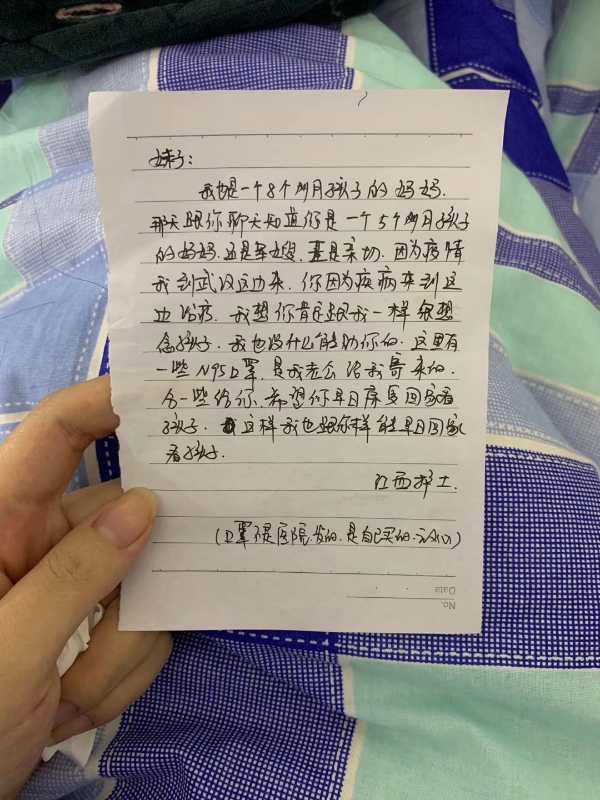 妹子：
我也是一个8个多月孩子的妈妈.
那天跟你聊天知道你是一个5个多月孩子
的妈妈. 还是军嫂. 真是亲切. 因为疫情
我到武汉这边来. 你因为疾病来到这
边治疗. 我想你肯定跟我一样很想
念孩子. 我也没什么能助你的. 这里有
一些N95口罩, 是我老公给我寄来的.
分一些给你. 希望你早日康复回家看
孩子. 这样我也跟你一样能早日回家
看孩子.
江西护士.
(口罩不是医院发的. 是自己买的. 放心)
No.
Date